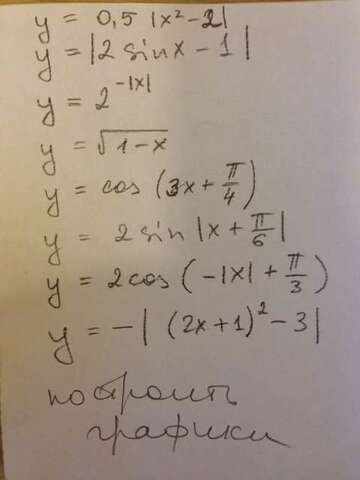 y = 0,5 |x² - 2|
y = |2 sin x - 1|
y = 2^{-|x|}
y = √(1-x)
y = cos (3x + π/4)
y = 2 sin |x + π/6|
y = 2 cos (-|x| + π/3)
y = -| (2x+1)² - 3|
построить
графики